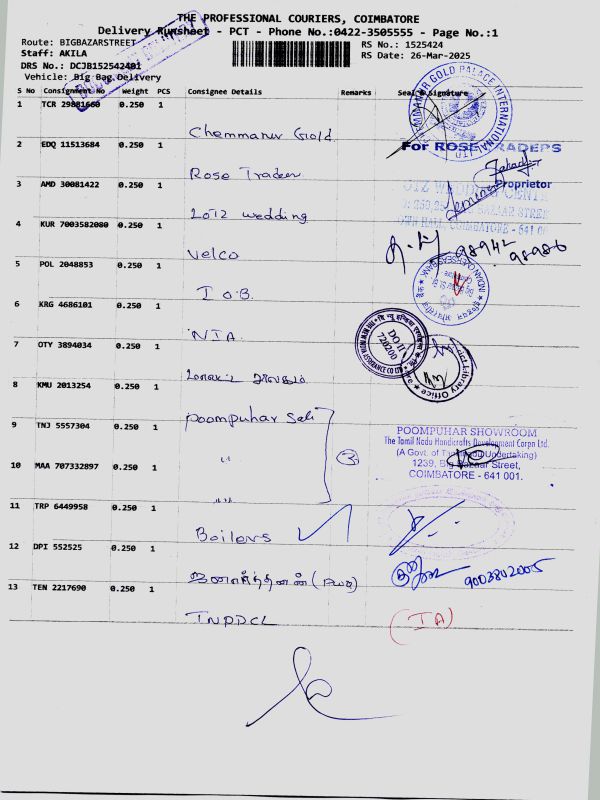 THE PROFESSIONAL COURIERS, COIMBATORE
Delivery Runsheet - PCT - Phone No.:0422-3505555 - Page No.:1
Route: BIGBAZARSTREET
RS No.: 1525424
Staff: AKILA
RS Date: 26-Mar-2025
DRS No.: DCJB152542401
Vehicle: Big Bag Delivery
S No Consignment No Weight PCS Consignee Details Remarks Seal & Signature
1 TCR 29881660 0.250 1
Chemmanur Gold
2 EDQ 11513684 0.250 1
For ROSE TRADERS
Rose Traders
Proprietor
3 AMD 30081422 0.250 1
2012 wedding
4 KUR 7003582080 0.250 1
Velco
98942
98986
5 POL 2048853 0.250 1
I O B
INDIAN OVERSEAS BANK
6 KRG 4686101 0.250 1
NIA
DO II
720200
7 OTY 3894034 0.250 1
Library Office
8 KMU 2013254 0.250 1
Poompuhar
9 TNJ 5557304 0.250 1
POOMPUHAR SHOWROOM
The Tamil Nadu Handicrafts Development Corpn Ltd.
(A Govt. of Undertaking)
10 MAA 707332897 0.250 1
1239, Big Bazaar Street,
COIMBATORE - 641 001.
11 TRP 6449958 0.250 1
Boilers
12 DPI 552525 0.250 1
(PWD)
9003802005
13 TEN 2217690 0.250 1
TNPDCL
(IA)